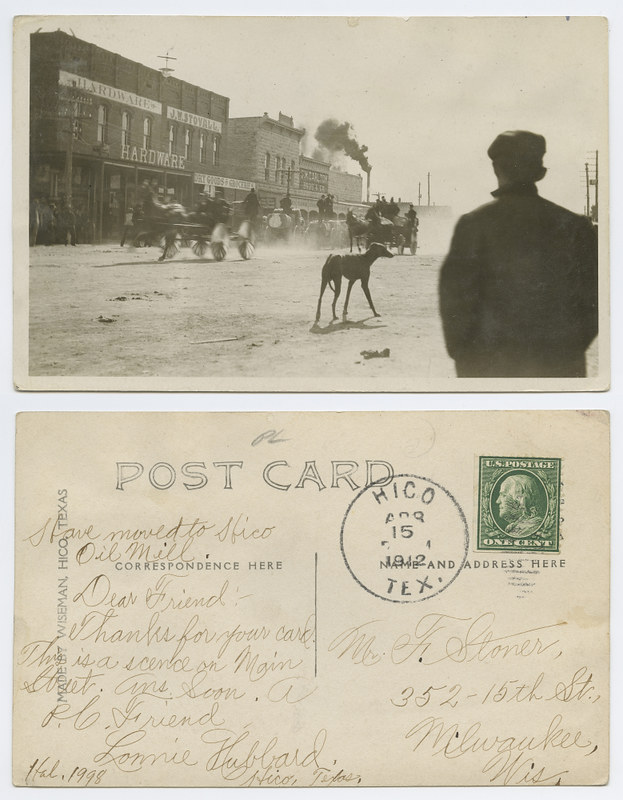 HARDWARE
J.W. STOVALL
HARDWARE
DRY GOODS & GROCERIES
PL
POST CARD
HICO
APR
15
1912
TEX.
U.S. POSTAGE
ONE CENT
MADE BY WISEMAN, HICO, TEXAS
Have moved to Hico
Oil Mill.
CORRESPONDENCE HERE
NAME AND ADDRESS HERE
Dear Friend:
Thanks for your card.
This is a scence on Main
Street. Ans. Soon. A
P.C. Friend
Lonnie Hubbard.
Hico, Texas.
Hal. 1998
Mr. F. Stoner,
352-15th St.,
Milwaukee,
Wis.